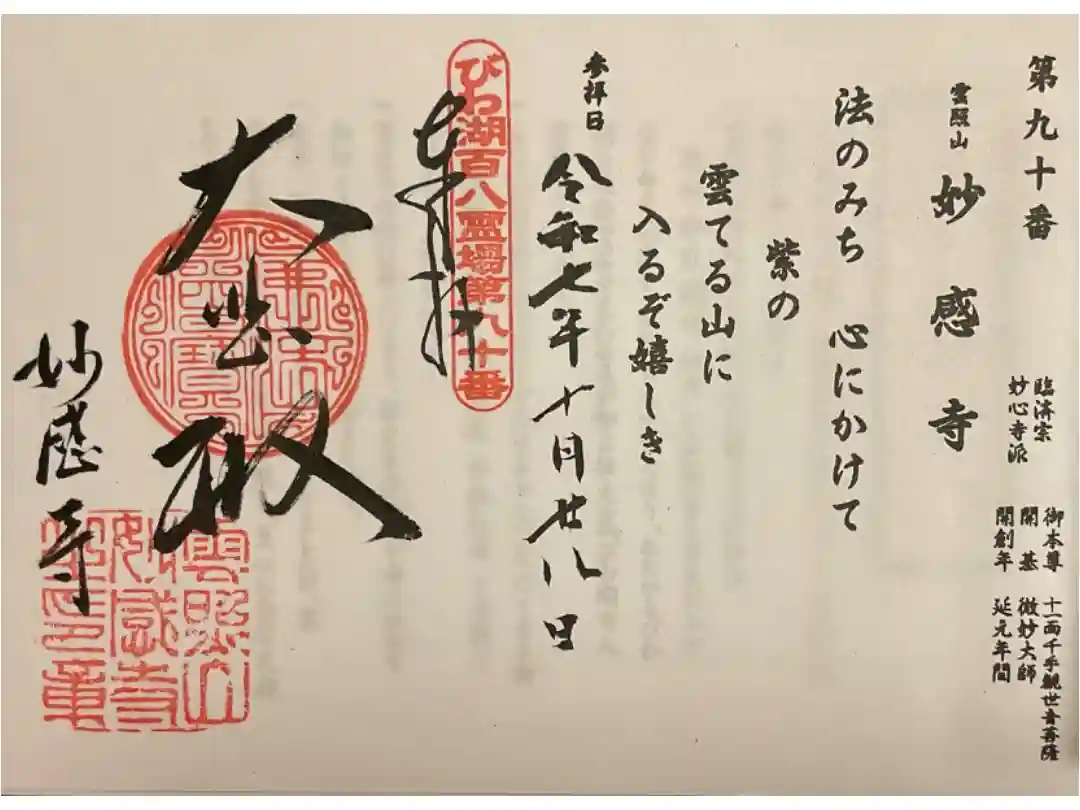 第九十番
雲照山 妙感寺
臨済宗
妙心寺派
御本尊 十一面千手観世音菩薩
開基 微妙大師
開創年 延元年間
法のみち 心にかけて
紫の
雲てる山に
入るぞ嬉しき
参拝日
令和七年十月廿八日
びわ湖百八霊場第九十番
奉拝
大悲殿
妙感寺
雲照山
妙感寺